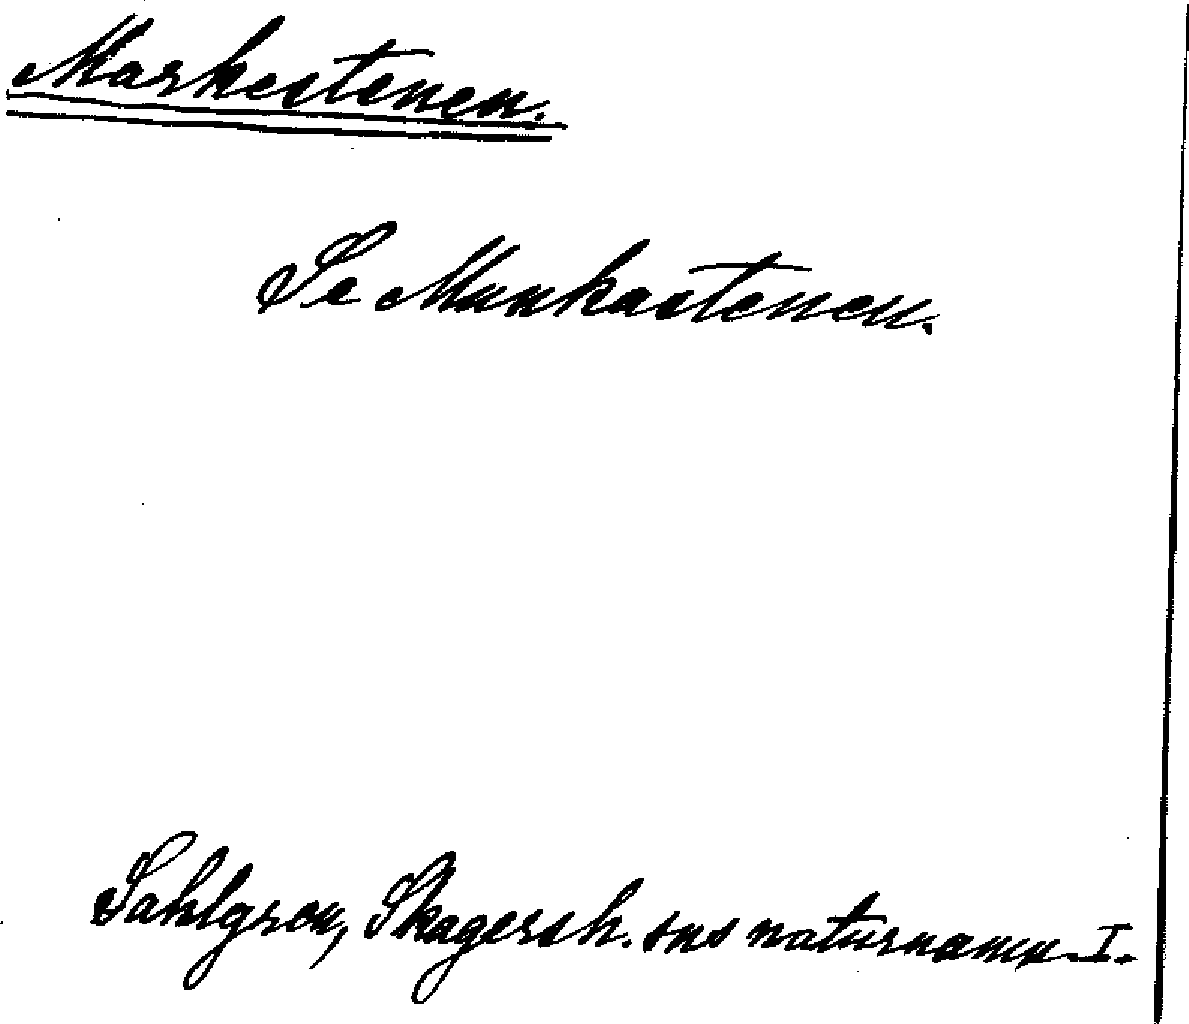 Markestenen.
Se Munkastenen.
Sahlgren, Skagersh. sns naturnamn I.